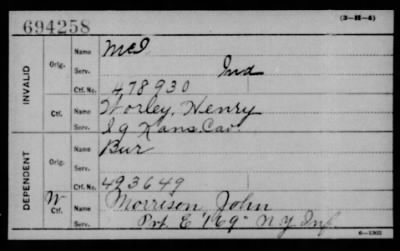 694258
(3-H-4)
INVALID
Orig.
Name McI
Serv. Ind
Ctf. No. 478930
Ctf.
Name Worley, Henry
Serv. I 9 Kans. Cav.
DEPENDENT
Orig.
Name Bur
Serv.
Ctf. No. 423649
W
Ctf.
Name Morrison, John
Serv. Pvt. E "169" N.Y. Inf.
6-1902